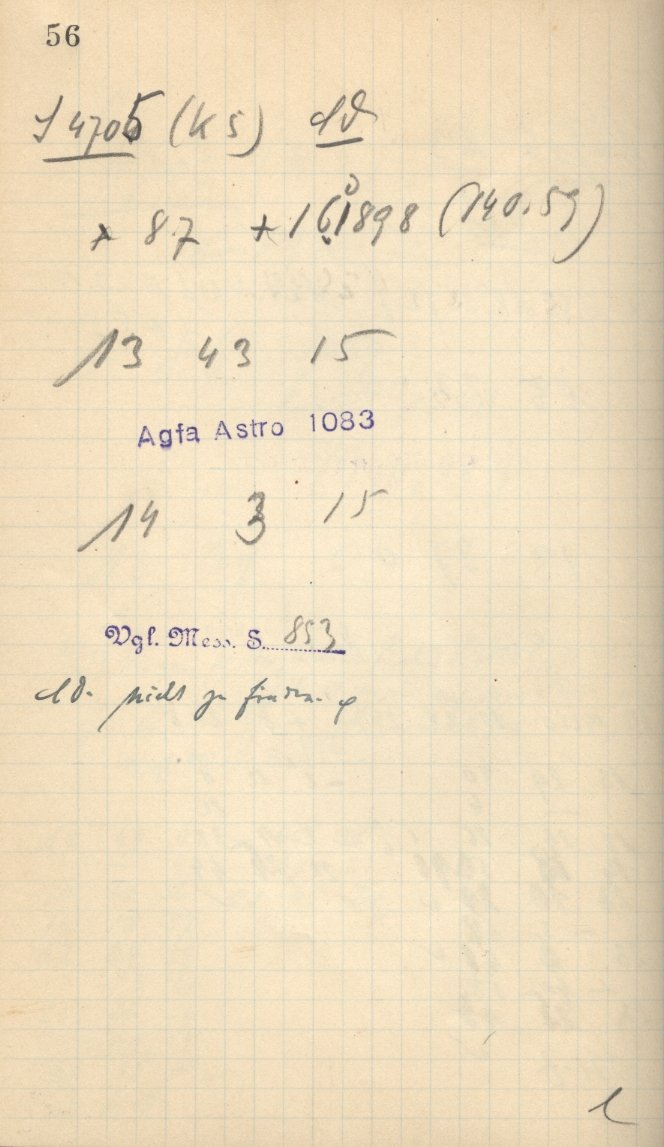 56
4705 (K5)
87 + 161898 (140.59)
13 43 15
Agfa Astro 1083
14 3 15
Vgl. Mess. S. 853
nicht zu finden.